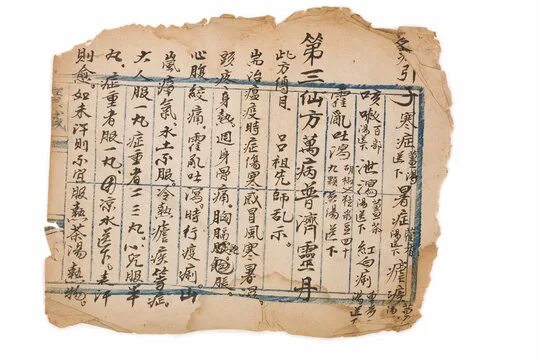 引子寒症薑湯送下暑症湯送下瘧疾
咳嗽百部湯送下泄瀉薑茶湯送下紅白痢湯送下
霍亂吐瀉胡椒粒菉豆四十九顆煎湯送下
第三仙方萬病普濟靈丹
此方傳自 呂祖先師乩示。
耑治瘟疫時症傷寒感冒風寒暑濕
頭疼身熱。週身骨痛。胸膈飽脹。
心腹絞痛。霍亂吐瀉。時行痧痢。山
嵐瘴氣水土不服。冷熱瘧疾等症。
大人服一丸症重者二三丸。小兒服半
丸。症重者服一丸。用涼水送下。表汗
則愈。如未汗則不宜服熱茶湯熱物。